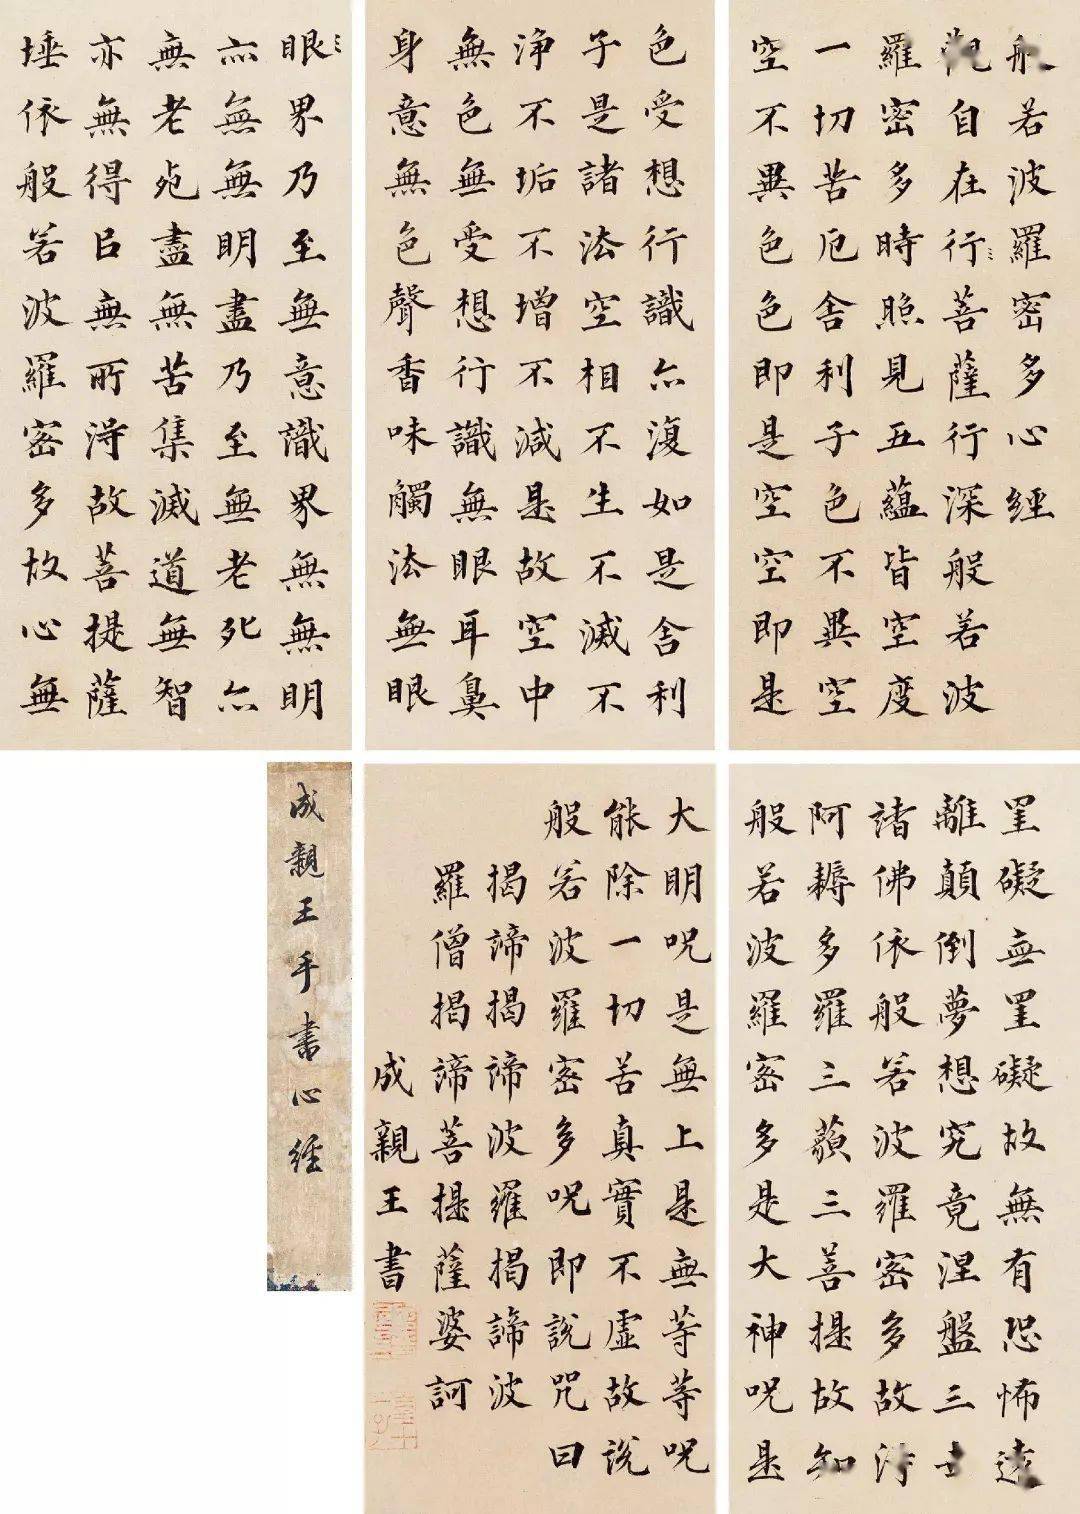 般若波羅密多心經
觀自在行菩薩行深般若波
羅密多時照見五蘊皆空度
一切苦厄舍利子色不異空
空不異色色即是空空即是
色受想行識亦復如是舍利
子是諸法空相不生不滅不
淨不垢不增不減是故空中
無色無受想行識無眼耳鼻
身意無色聲香味觸法無眼
眼界乃至無意識界無無明
亦無無明盡乃至無老死亦
無老死盡無苦集滅道無智
亦無得㠯無所得故菩提薩
埵依般若波羅密多故心無
罣礙無罣礙故無有恐怖遠
離顛倒夢想究竟涅盤三世
諸佛依般若波羅密多故得
阿耨多羅三藐三菩提故知
般若波羅密多是大神呪是
大明呪是無上是無等等呪
能除一切苦真實不虛故說
般若波羅密多呪即說咒曰
揭諦揭諦波羅揭諦波
羅僧揭諦菩提薩婆訶
成親王書
成親王手書心經